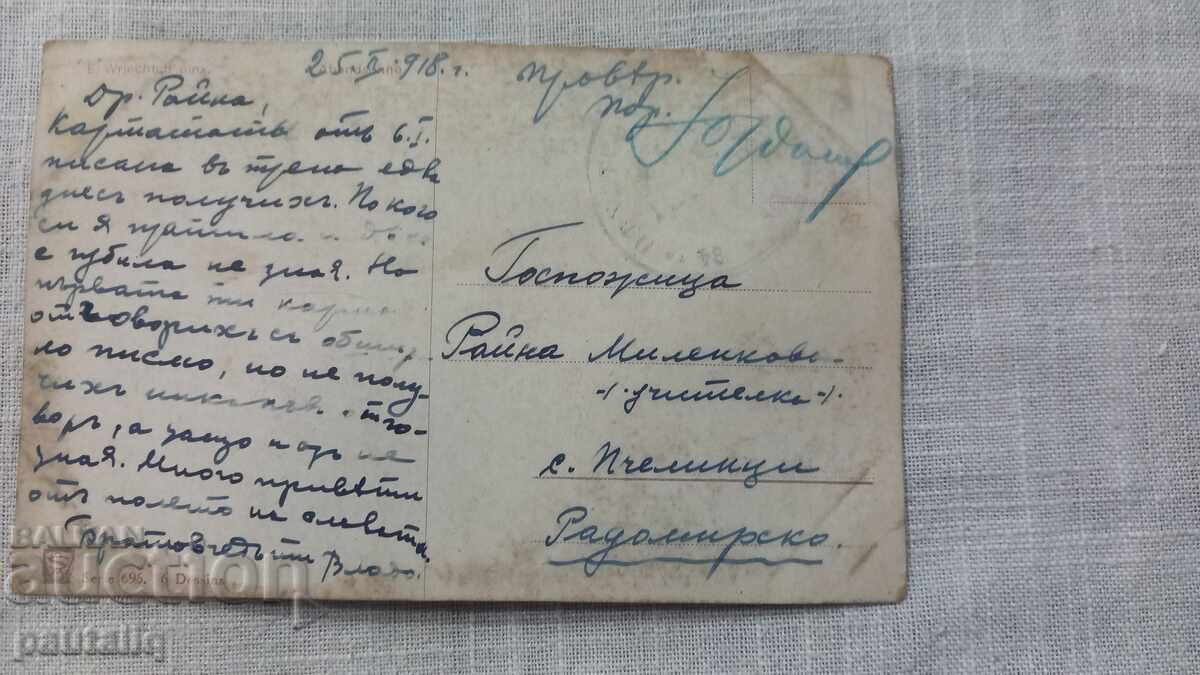 E. Wriechtoff pinx.
25. II. 918 г.
Др. Райна,
Картата отъ 6. I.
писана въ трена едва
днесъ получихъ. По кого
си я пратила и где
е губила не зная. На
първата ти карта
отговорихъ съ обшир
но писмо, но не полу-
чихъ никакъвъ отго-
воръ, а защо и азъ не
зная. Много привети
отъ полето на славата
Братовчедъ ти Владо.
Serie 696. 6 Dessins
провѣр.
пор.
Госпожица
Райна Миленкова
-/. учителка ./.
с. Пчелинци
Радомирско.
BALKAN
auction
pautaliq